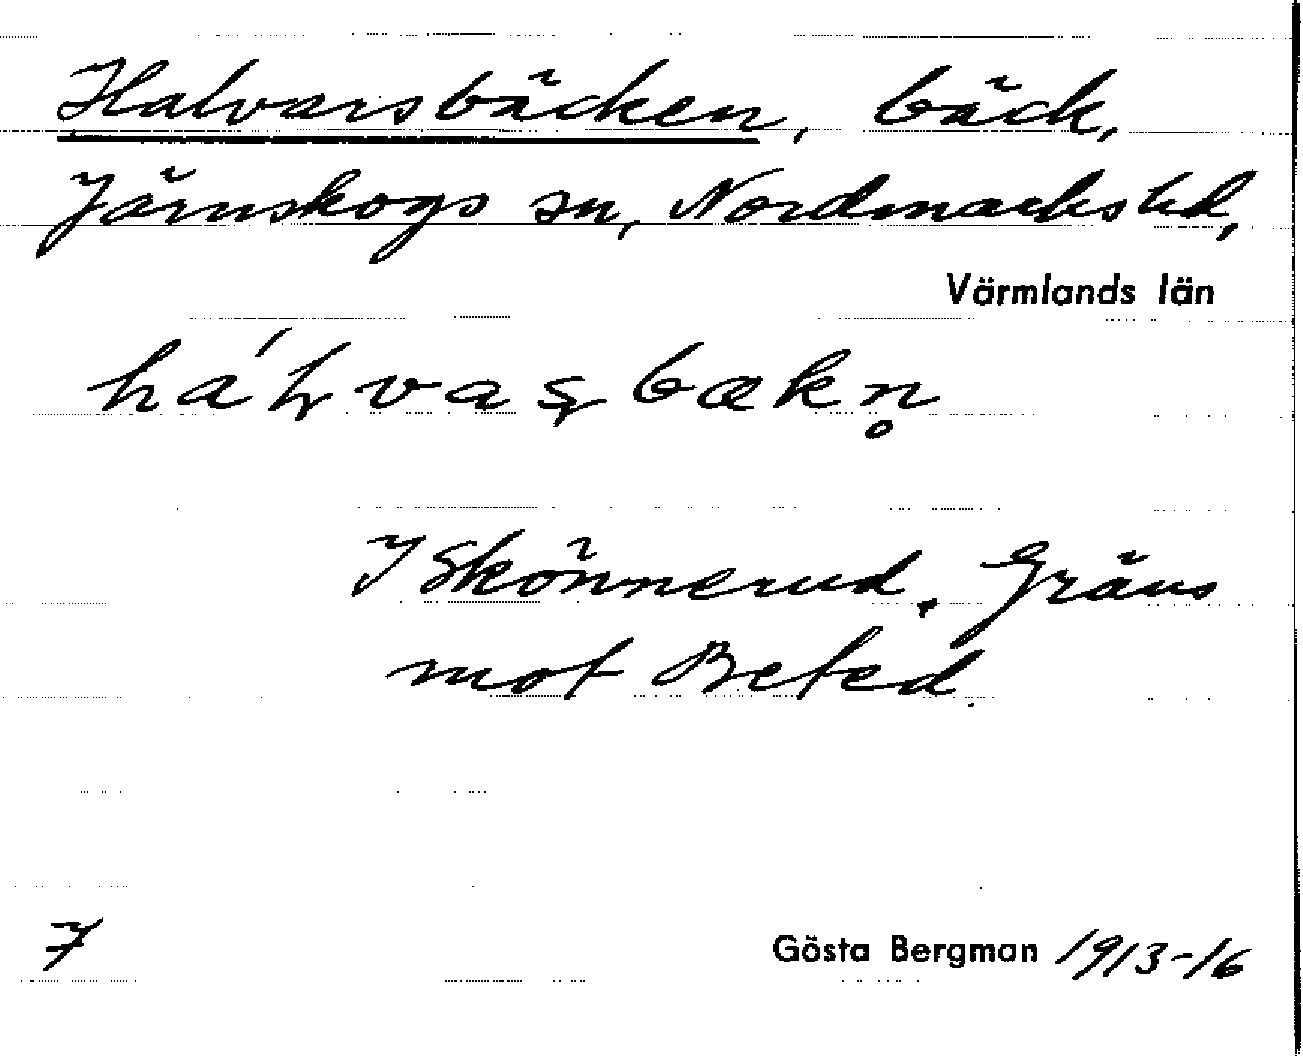 Halvarsbäcken, bäck,
Järnskogs sn, Nordmarks hd,
Värmlands län
há'l̥vaʂbækn̥
I Skönnerud. Gräns
mot Beted.
7
Gösta Bergman 1913-16